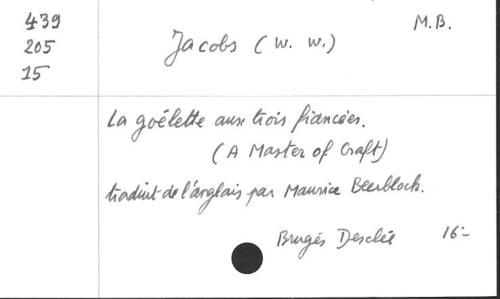 439
205
15
M.B.
Jacobs (W. W.)
La goélette aux trois fiancées.
(A Master of Craft)
traduit de l'anglais par Maurice Beerblock.
Bruges Desclée 16:-